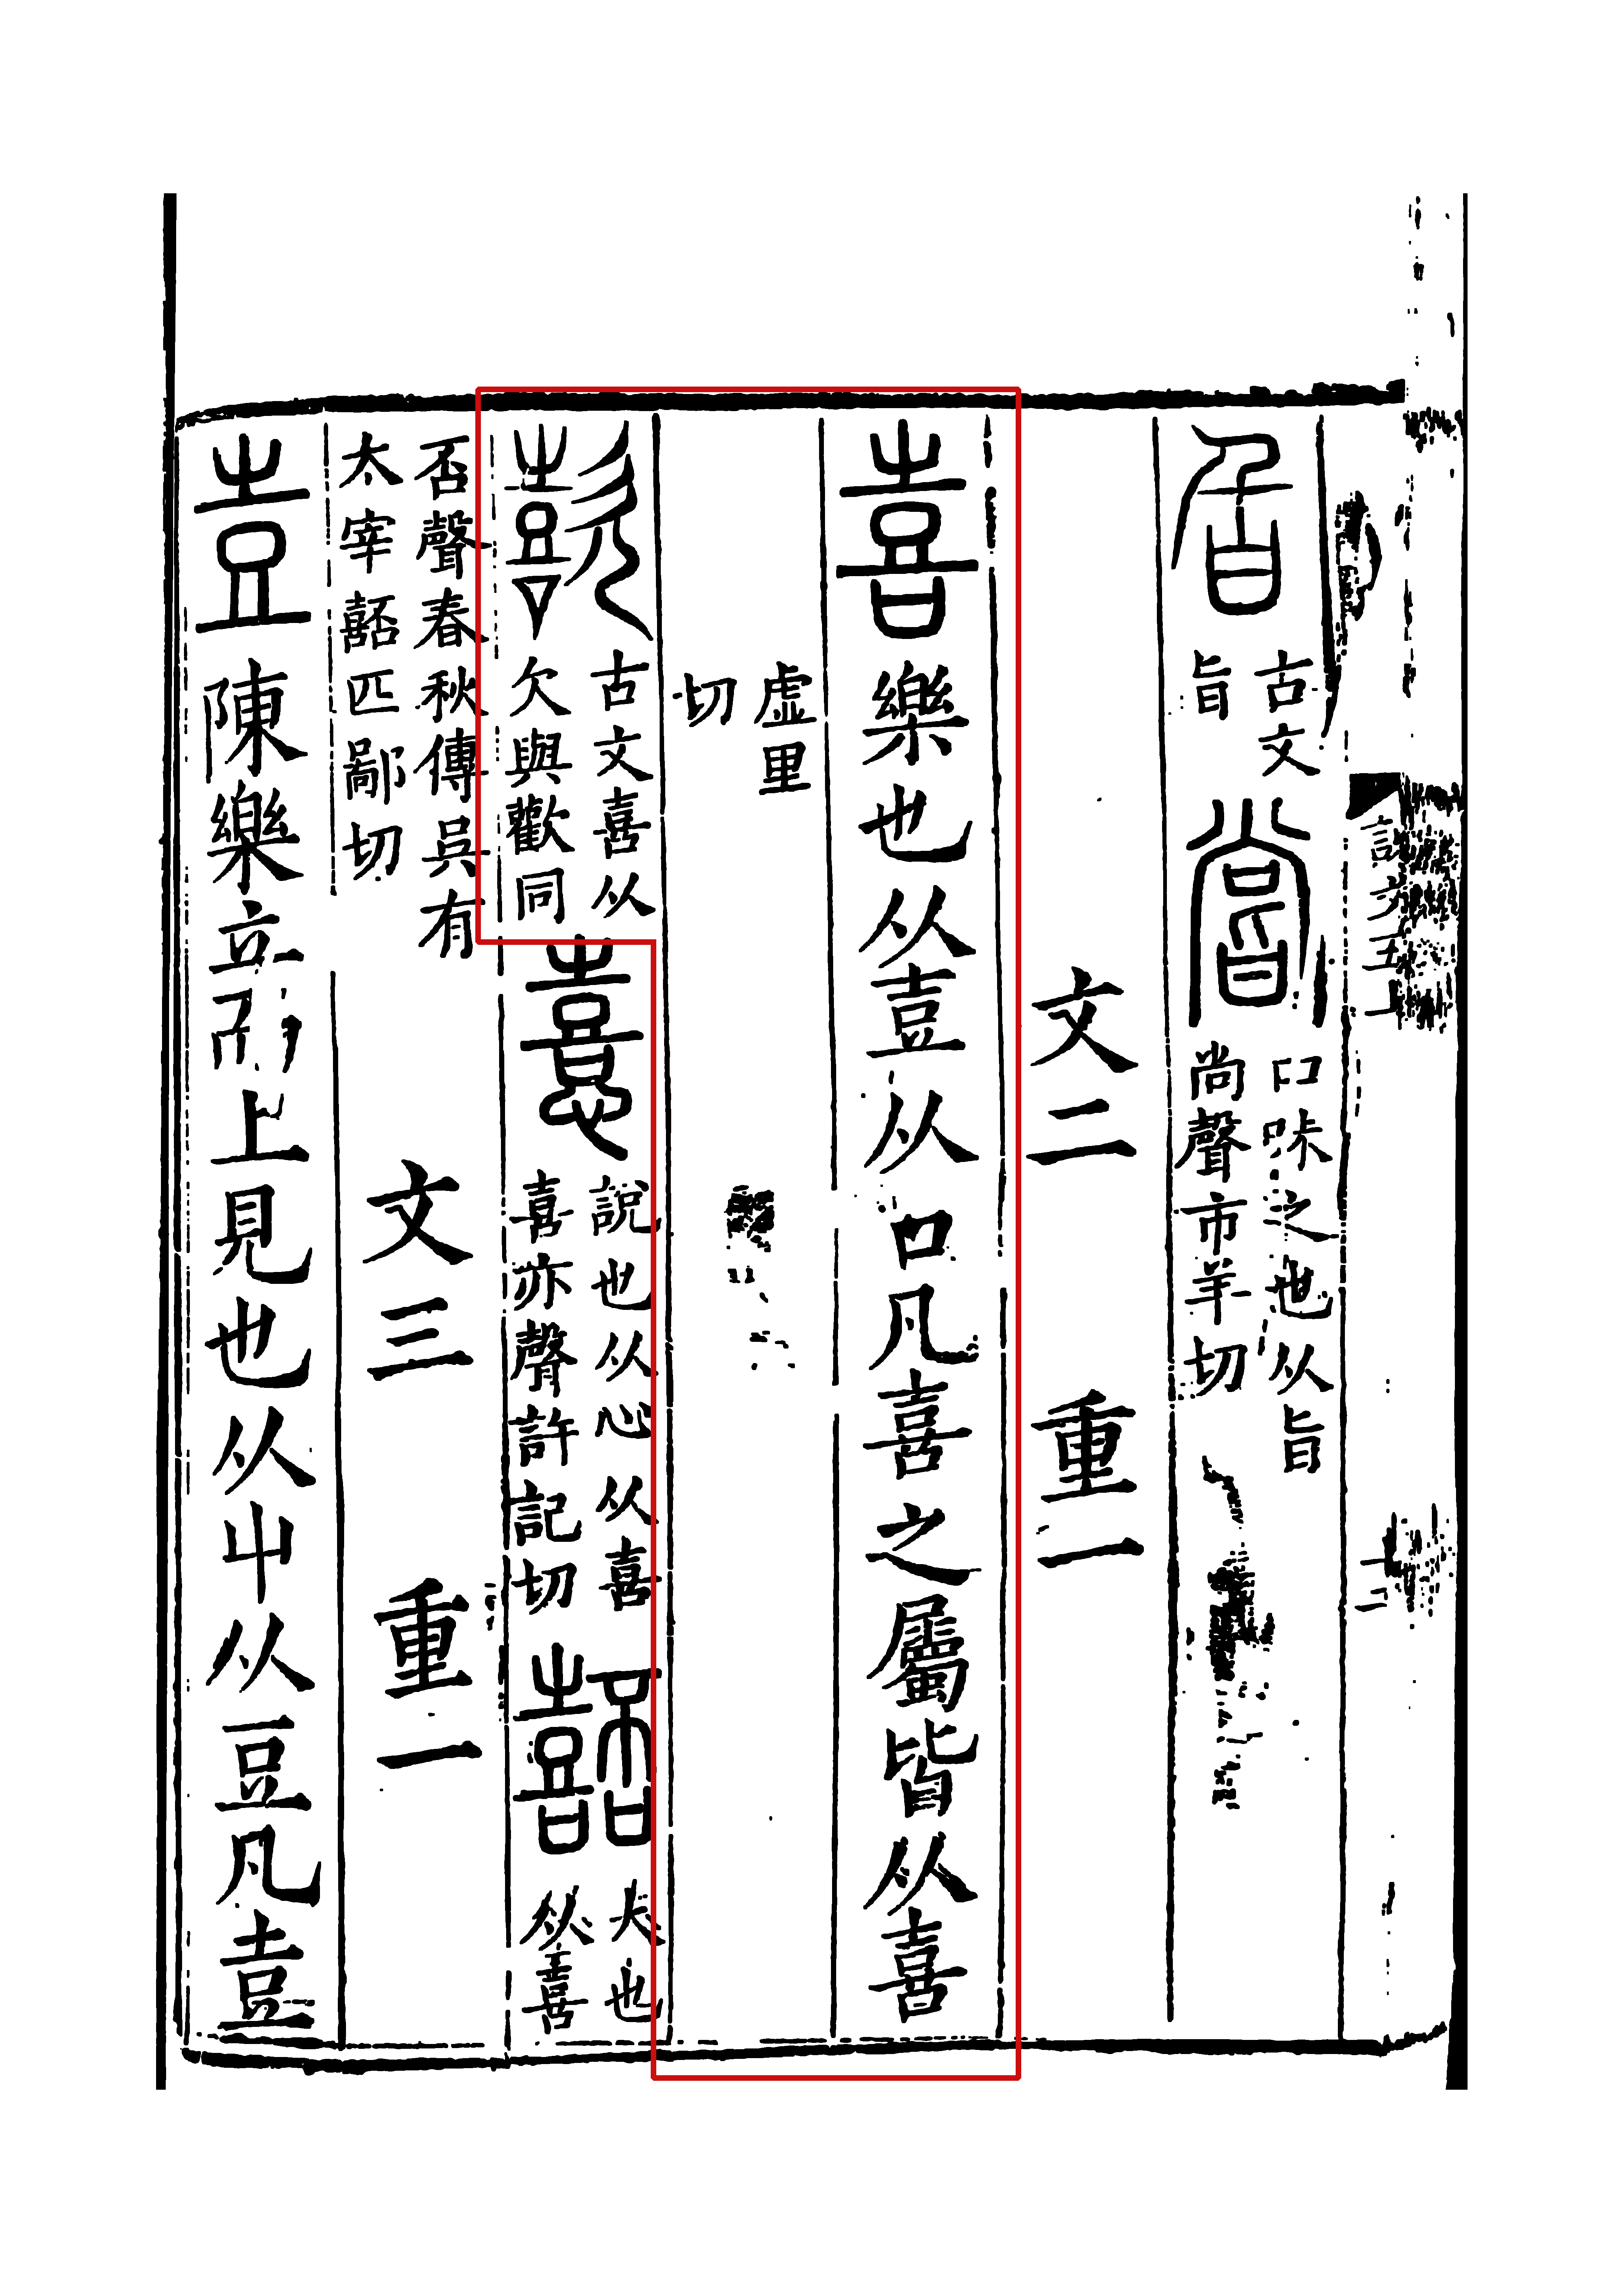 𣅌古文旨嘗口味之也从旨尚聲市羊切
文二 重一
喜樂也从壴从口凡喜之屬皆从喜
虛里切
歖古文喜从欠與歡同憙說也从心从喜喜亦聲許記切嚭大也从喜
否聲春秋傳吳有太宰嚭匹鄙切 文三 重一
壴陳樂立而上見也从屮从豆凡壴